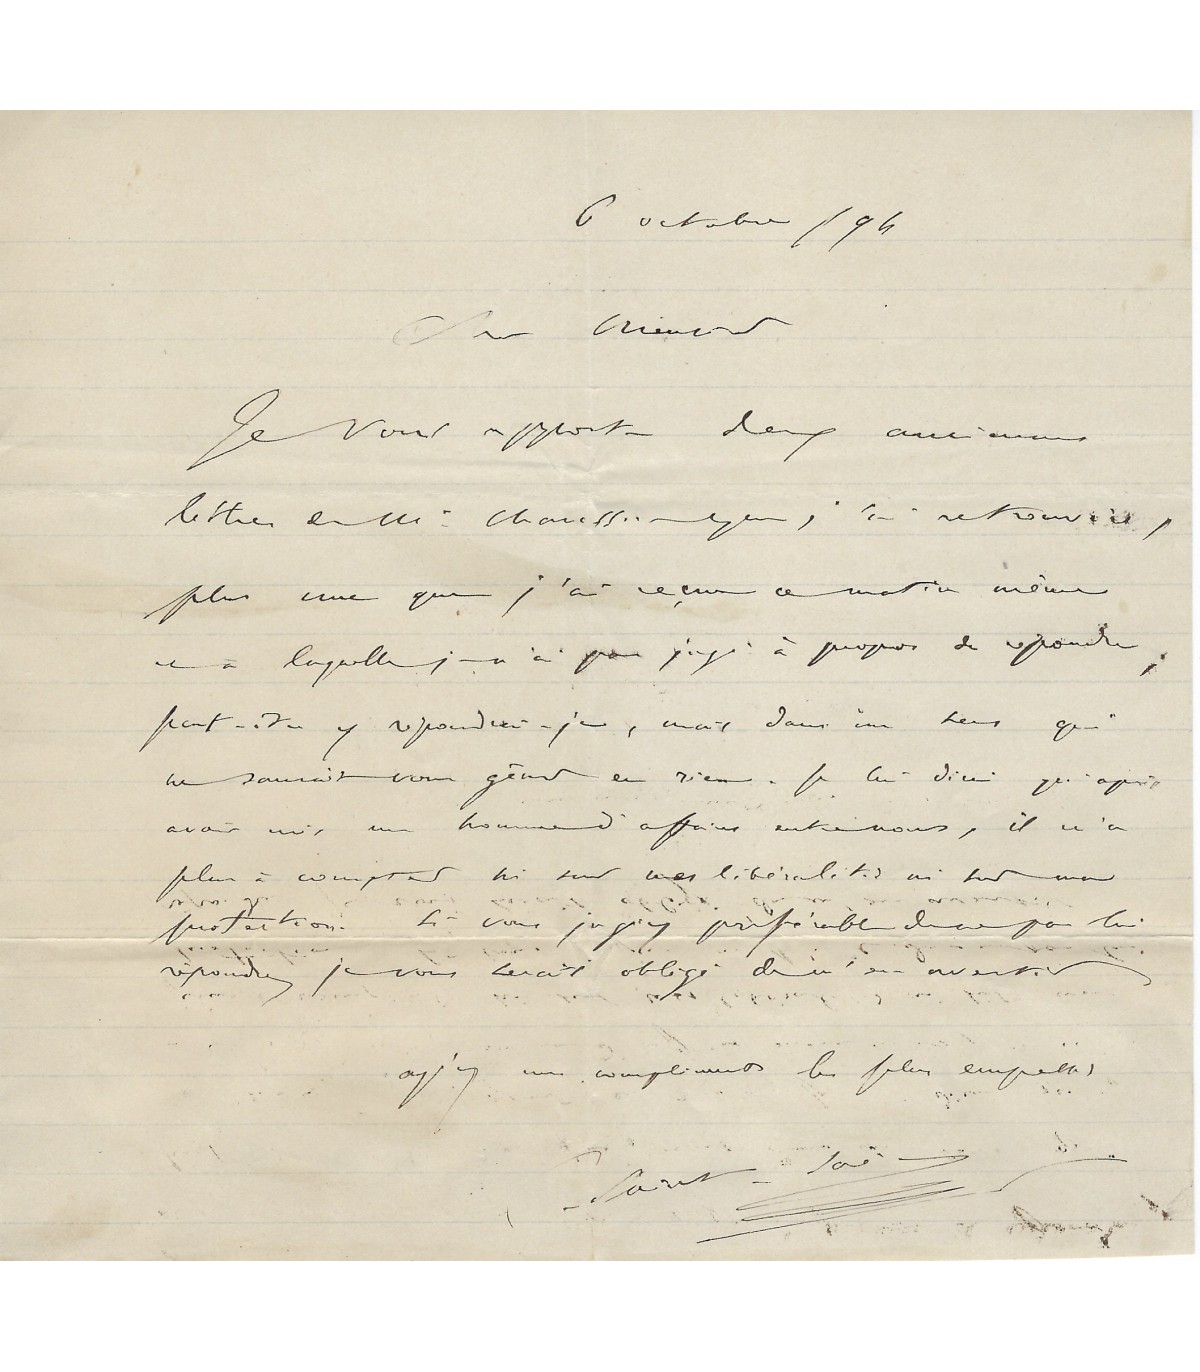 6 octobre /94
Je vous apporte deux anciennes
lettres de M. j'ai retrouvées,
plus une que j'ai reçue ce matin même
et à laquelle je n'ai pas jugé à propos de répondre,
peut-être y répondrai-je, mais dans un sens qui
ne saurait vous gêner en rien. Je lui dirai qu'après
avoir mis un homme d'affaires entre nous, il n'a
plus à compter ni sur mes libéralités ni sur ma
protection. Si vous jugiez préférable de ne pas lui
répondre, je vous serais obligé de m'en avertir
mes compliments les plus empressés
Saint-